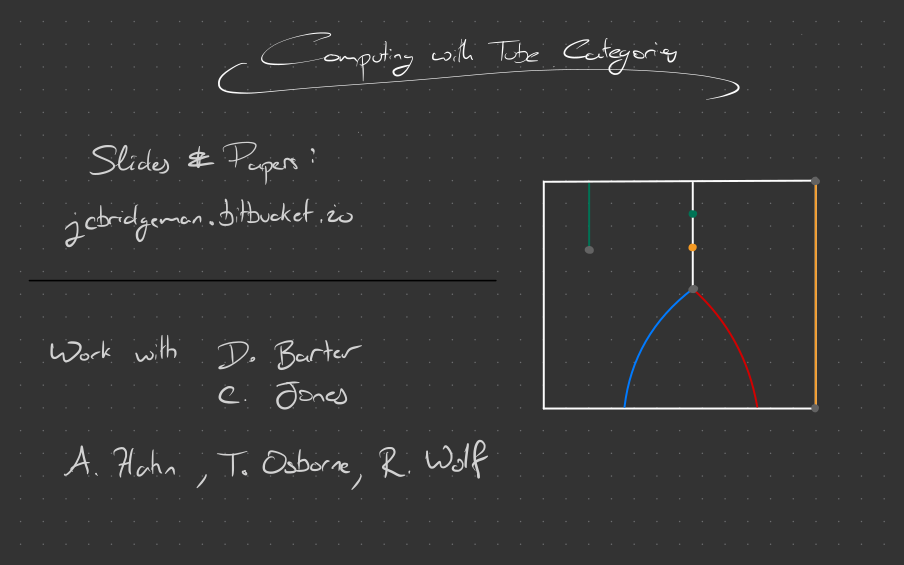 Computing with Tube Categories
Slides & Papers:
jcbridgeman.bitbucket.io
Work with D. Barter
C. Jones
A. Hahn, T. Osborne, R. Wolf